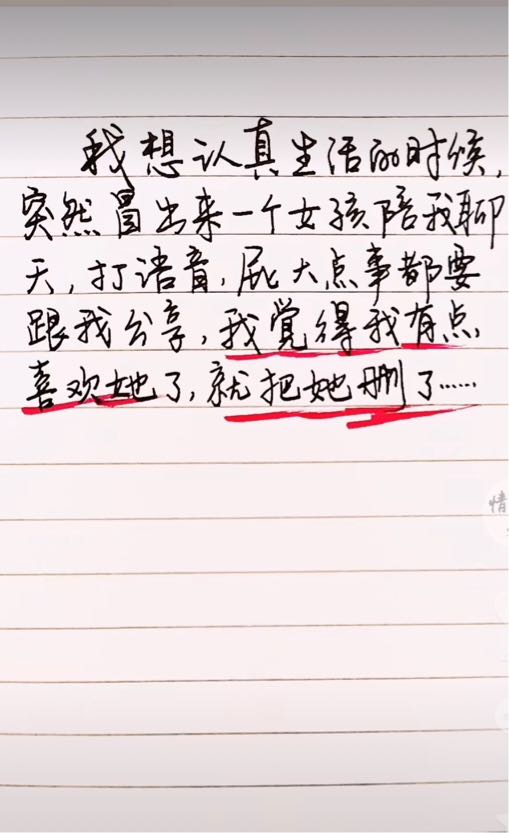 我想认真生活的时候,
突然冒出来一个女孩陪我聊
天,打语音,屁大点事都要
跟我分享,我觉得我有点
喜欢她了,就把她删了……
情